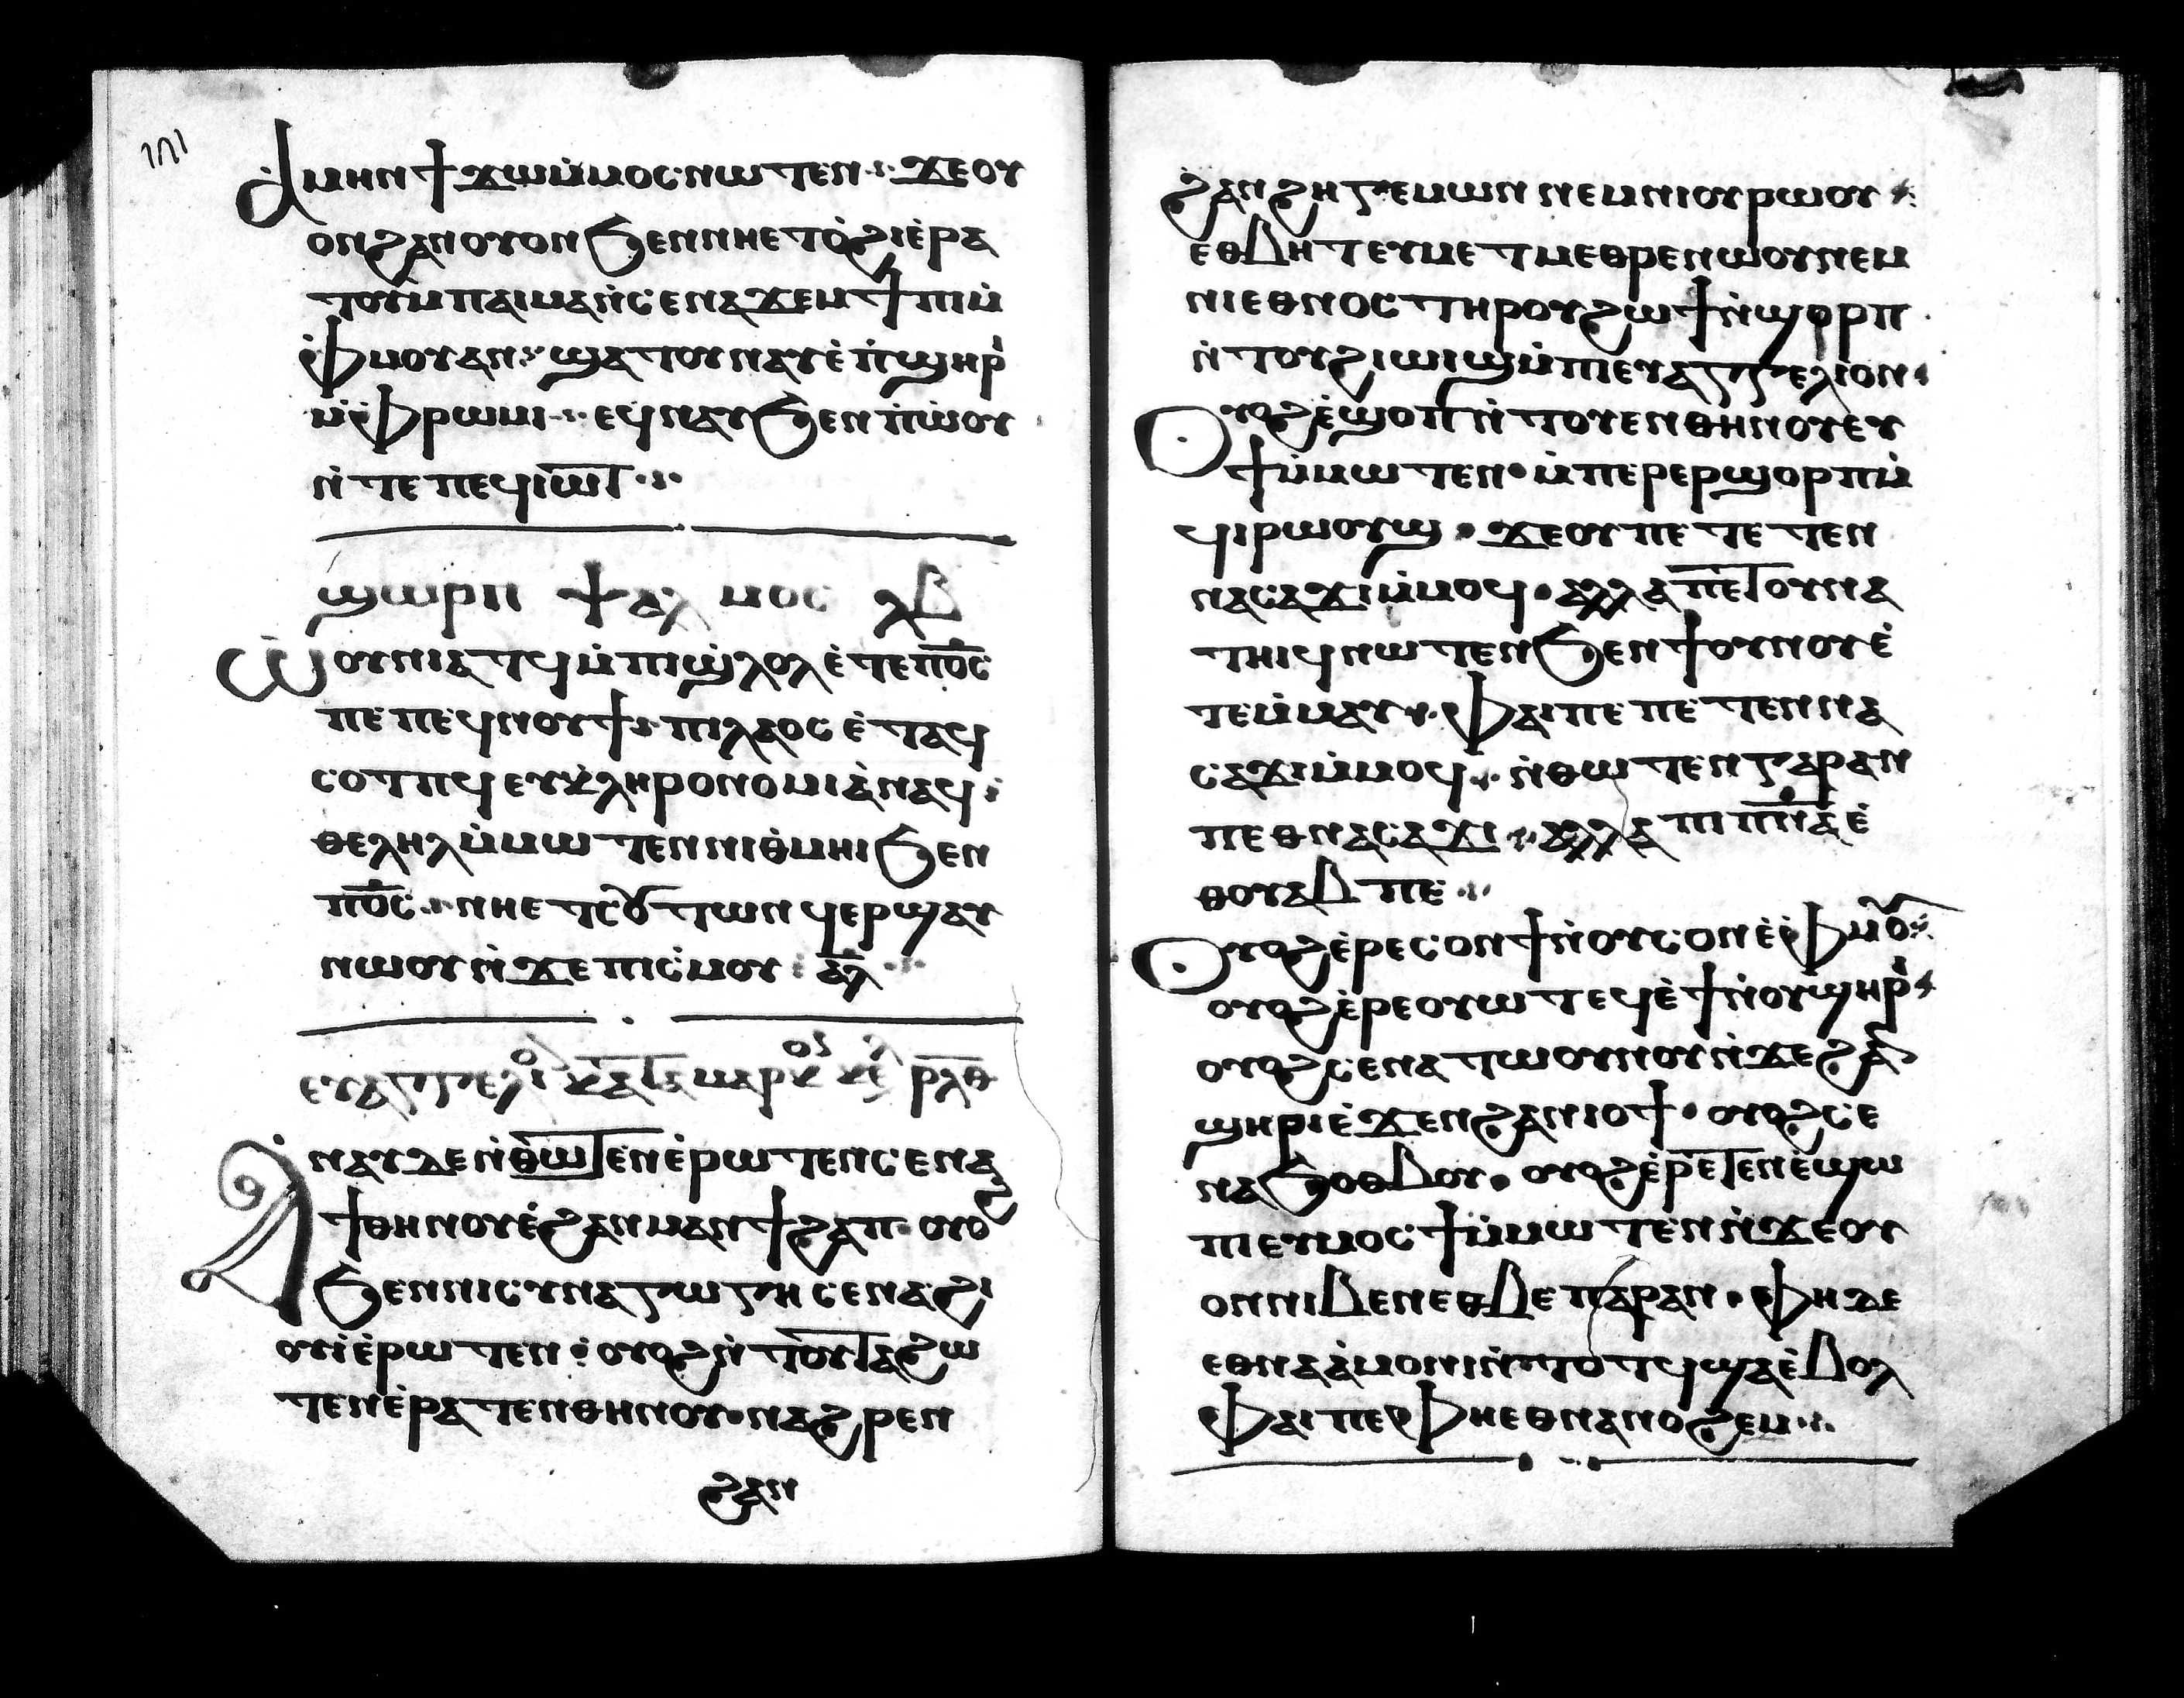 ⲁⲙⲏⲛ ϯϫⲱⲙ̇ⲙⲟⲥ ⲛⲱⲧⲉⲛ ⁘ ϫⲉⲟⲩ
ⲟⲛ ϩⲁⲛⲟⲩⲟⲛ ϧⲉⲛ ⲛⲏⲉⲧⲟ̇ϩⲓ ⲉ̇ⲣⲁ
ⲧⲟⲩ ⲙ̇ⲡⲁⲓⲙⲁ ⲛ̇ⲥⲉⲛⲁϫⲉⲙϯⲡⲓ ⲙ̇
ⲫ̇ⲙⲟⲩ ⲁⲛ ⁘ ϣⲁⲧⲟⲩⲛⲁⲩ ⲉ̇ⲡ̇ϣⲏⲣ̇
ⲙ̇ⲫ̇ⲣⲱⲙⲓ ⁘ ⲉϥⲛⲏⲩ ϧⲉⲛ ⲡ̇ⲱ̇ⲟⲩ
ⲛ̇ⲧⲉ ⲡⲉϥⲓⲱⲧ ⁘
ϣⲱⲣⲡ ⲯⲁⲗⲙⲟⲥ ⲗⲃ
ⲱⲟⲩⲛⲓⲁⲧϥ ⲙ̇ⲡⲓϣ̇ⲗⲟⲗ ⲉ̇ⲧⲉ ⲡ̅ⲟ̅ⲥ̅
ⲡⲉ ⲡⲉϥⲛⲟⲩϯ ⁘ ⲡⲓⲗⲁⲟⲥ ⲉ̇ⲧⲁϥ
ⲥⲟⲧⲡϥ ⲉⲩⲕ̇ⲗⲏⲣⲟⲛⲟⲙⲓⲁ̇ ⲛⲁϥ ⁘
ⲑⲉⲗⲏⲗ ⲙ̇ⲙⲱⲧⲉⲛ ⲛⲓⲑ̇ⲙⲏⲓ ϧⲉⲛ
ⲡ̅ⲟ̅ⲥ̅ ⁘ ⲛⲏⲉⲧⲥⲟⲩⲧⲱⲛ ϥⲉⲣϣⲁⲩ
ⲛⲱⲟⲩ ⲛ̇ϫⲉ ⲡⲓⲥ̇ⲙⲟⲩ ⁘ ⲁ̅ⲗ̅ ⁘
ⲉⲩⲁⲅⲅⲉⲗⲓⲟ ⲕⲁⲧⲁ ⲙⲁⲣⲕⲟⲥ ⲕⲉ ⲣⲗⲑ
ⲁⲛⲁⲩ ⲇⲉ ⲛ̇ⲑⲱⲧⲉⲛ ⲉ̇ⲣⲱⲧⲉⲛ ⲥⲉⲛⲁ
ϯⲑⲏⲛⲟⲩ ⲉ̇ϩⲁⲛⲙⲁⲛϯϩⲁⲡ ⲟⲩⲟϩ
ϧⲉⲛ ⲛⲓⲥⲩⲛⲁⲅⲱⲅⲏ ⲥⲉⲛⲁϩⲓ
ⲟⲩⲓ̇ ⲉ̇ⲣⲱⲧⲉⲛ ⁘ ⲟⲩⲟϩ ⲛ̇ⲧⲟⲩⲧⲁϩⲱ
ⲧⲉⲛ ⲉ̇ⲣⲁⲧⲉⲛⲑⲏⲛⲟⲩ ⲛⲁϩⲣⲉⲛ
ϩⲁⲛ
ϩⲁⲛϩⲏⲅⲉⲙⲱⲛ ⲛⲉⲙ ⲛⲓⲟⲩⲣⲱⲟⲩ ⁘
ⲉⲑⲃⲏⲧ ⲉⲩⲙⲉⲧⲙⲉⲑⲣⲉ ⲛⲱⲟⲩ ⲛⲉⲙ
ⲛⲓⲉⲑⲛⲟⲥ ⲧⲏⲣⲟⲩ ϩⲱϯ ⲛ̇ϣⲟⲣⲡ
ⲛ̇ⲧⲟⲩϩⲓⲱⲓϣ ⲙ̇ⲡⲓⲉⲩⲁⲅⲅⲉⲗⲓⲟⲛ ⁘
ⲟⲩⲟϩ ⲉ̇ϣⲟⲡ ⲛ̇ⲧⲟⲩⲉⲛⲑⲏⲛⲟⲩ ⲉⲩ
ϯ ⲙ̇ⲙⲱⲧⲉⲛ · ⲙ̇ⲡⲉⲣⲉⲣϣⲟⲣⲡ ⲙ̇
ϥⲓⲣⲱⲟⲩϣ · ϫⲉ ⲟⲩⲡⲉⲧⲉⲧⲉⲛ
ⲛⲁⲥⲁϫⲓ ⲙ̇ⲙⲟϥ · ⲁⲗⲗⲁ ⲡⲉⲧⲟⲩⲛⲁ
ⲧⲏⲓϥ ⲛⲱⲧⲉⲛ ϧⲉⲛ ϯⲟⲩⲛⲟⲩ ⲉ̇
ⲧⲉⲙ̇ⲙⲁⲩ ⁘ ⲫⲁⲓ ⲡⲉ ⲡⲉⲧⲉⲛⲛⲁ
ⲥⲁϫⲓ ⲙ̇ⲙⲟϥ ⁘ ⲛ̇ⲑⲱⲧⲉⲛ ⲅⲁⲣ ⲁⲛ
ⲡⲉⲑⲛⲁⲥⲁϫⲓ ⁘ ⲁⲗⲗⲁ ⲡⲓⲡ̅ⲛ̅ⲁ̅ ⲉ̇
ⲑⲟⲩⲁⲃ ⲡⲉ ⁘
ⲟⲩⲟϩ ⲉ̇ⲣⲉ ⲥⲟⲛ ϯ ⲛ̇ⲟⲩⲥⲟⲛ ⲉ̇ⲫ̇ⲙⲟⲩ ⁘
ⲟⲩⲟϩ ⲉ̇ⲣⲉ ⲟⲩⲱⲧ ⲉϥⲉ̇ϯ ⲛ̇ⲟⲩϣⲏⲣ̇ ⁘
ⲟⲩⲟϩ ⲥⲉⲛⲁⲧⲱⲟⲩⲛⲟⲩ ⲛ̇ϫⲉ ϩⲁⲛ
ϣⲏⲣⲓ ⲉ̇ϫⲉⲛ ϩⲁⲛⲓⲟϯ · ⲟⲩⲟϩ ⲥⲉ
ⲛⲁϧⲟⲑⲃⲟⲩ · ⲟⲩⲟϩ ⲉ̇ⲣⲉⲧⲉⲛⲉ̇ϣⲱ
ⲡⲓ ⲉⲩⲙⲟⲥϯ ⲙ̇ⲙⲱⲧⲉⲛ ⲛ̇ϫⲉ ⲟⲩ
ⲟⲛ ⲛⲓⲃⲉⲛ ⲉⲑⲃⲉ ⲡⲁⲣⲁⲛ · ⲫⲏ ⲇⲉ
ⲉⲑⲛⲁⲁ̇ⲙⲟⲛⲓ ⲛ̇ⲧⲟⲧϥ ϣⲁ ⲉ̇ⲃⲟⲗ
ⲫⲁⲓ ⲡⲉ ⲫⲏⲉⲑⲛⲁⲛⲟϩⲉⲙ ⁘